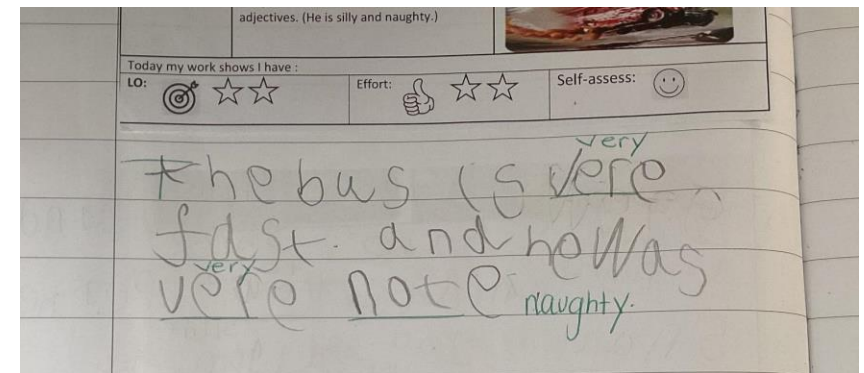 adjectives. (He is silly and naughty.)
Today my work shows I have :
LO: Effort: Self-assess:
very
The bus is vere
fast. and he Was
very
vere note naughty.